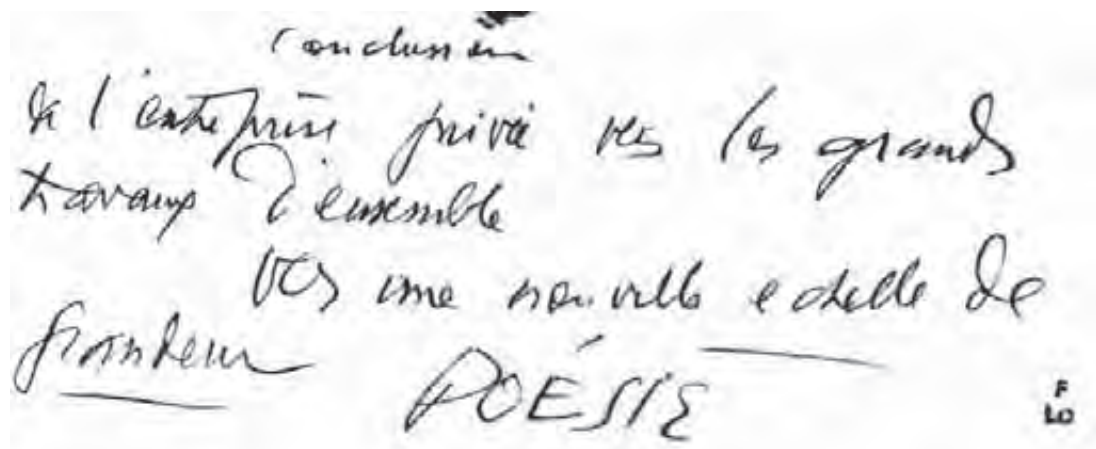 Conclusion
de l'entreprise privée vers les grands
travaux d'ensemble
vers une nouvelle echelle de
grandeur
POÉSIE
F
LC